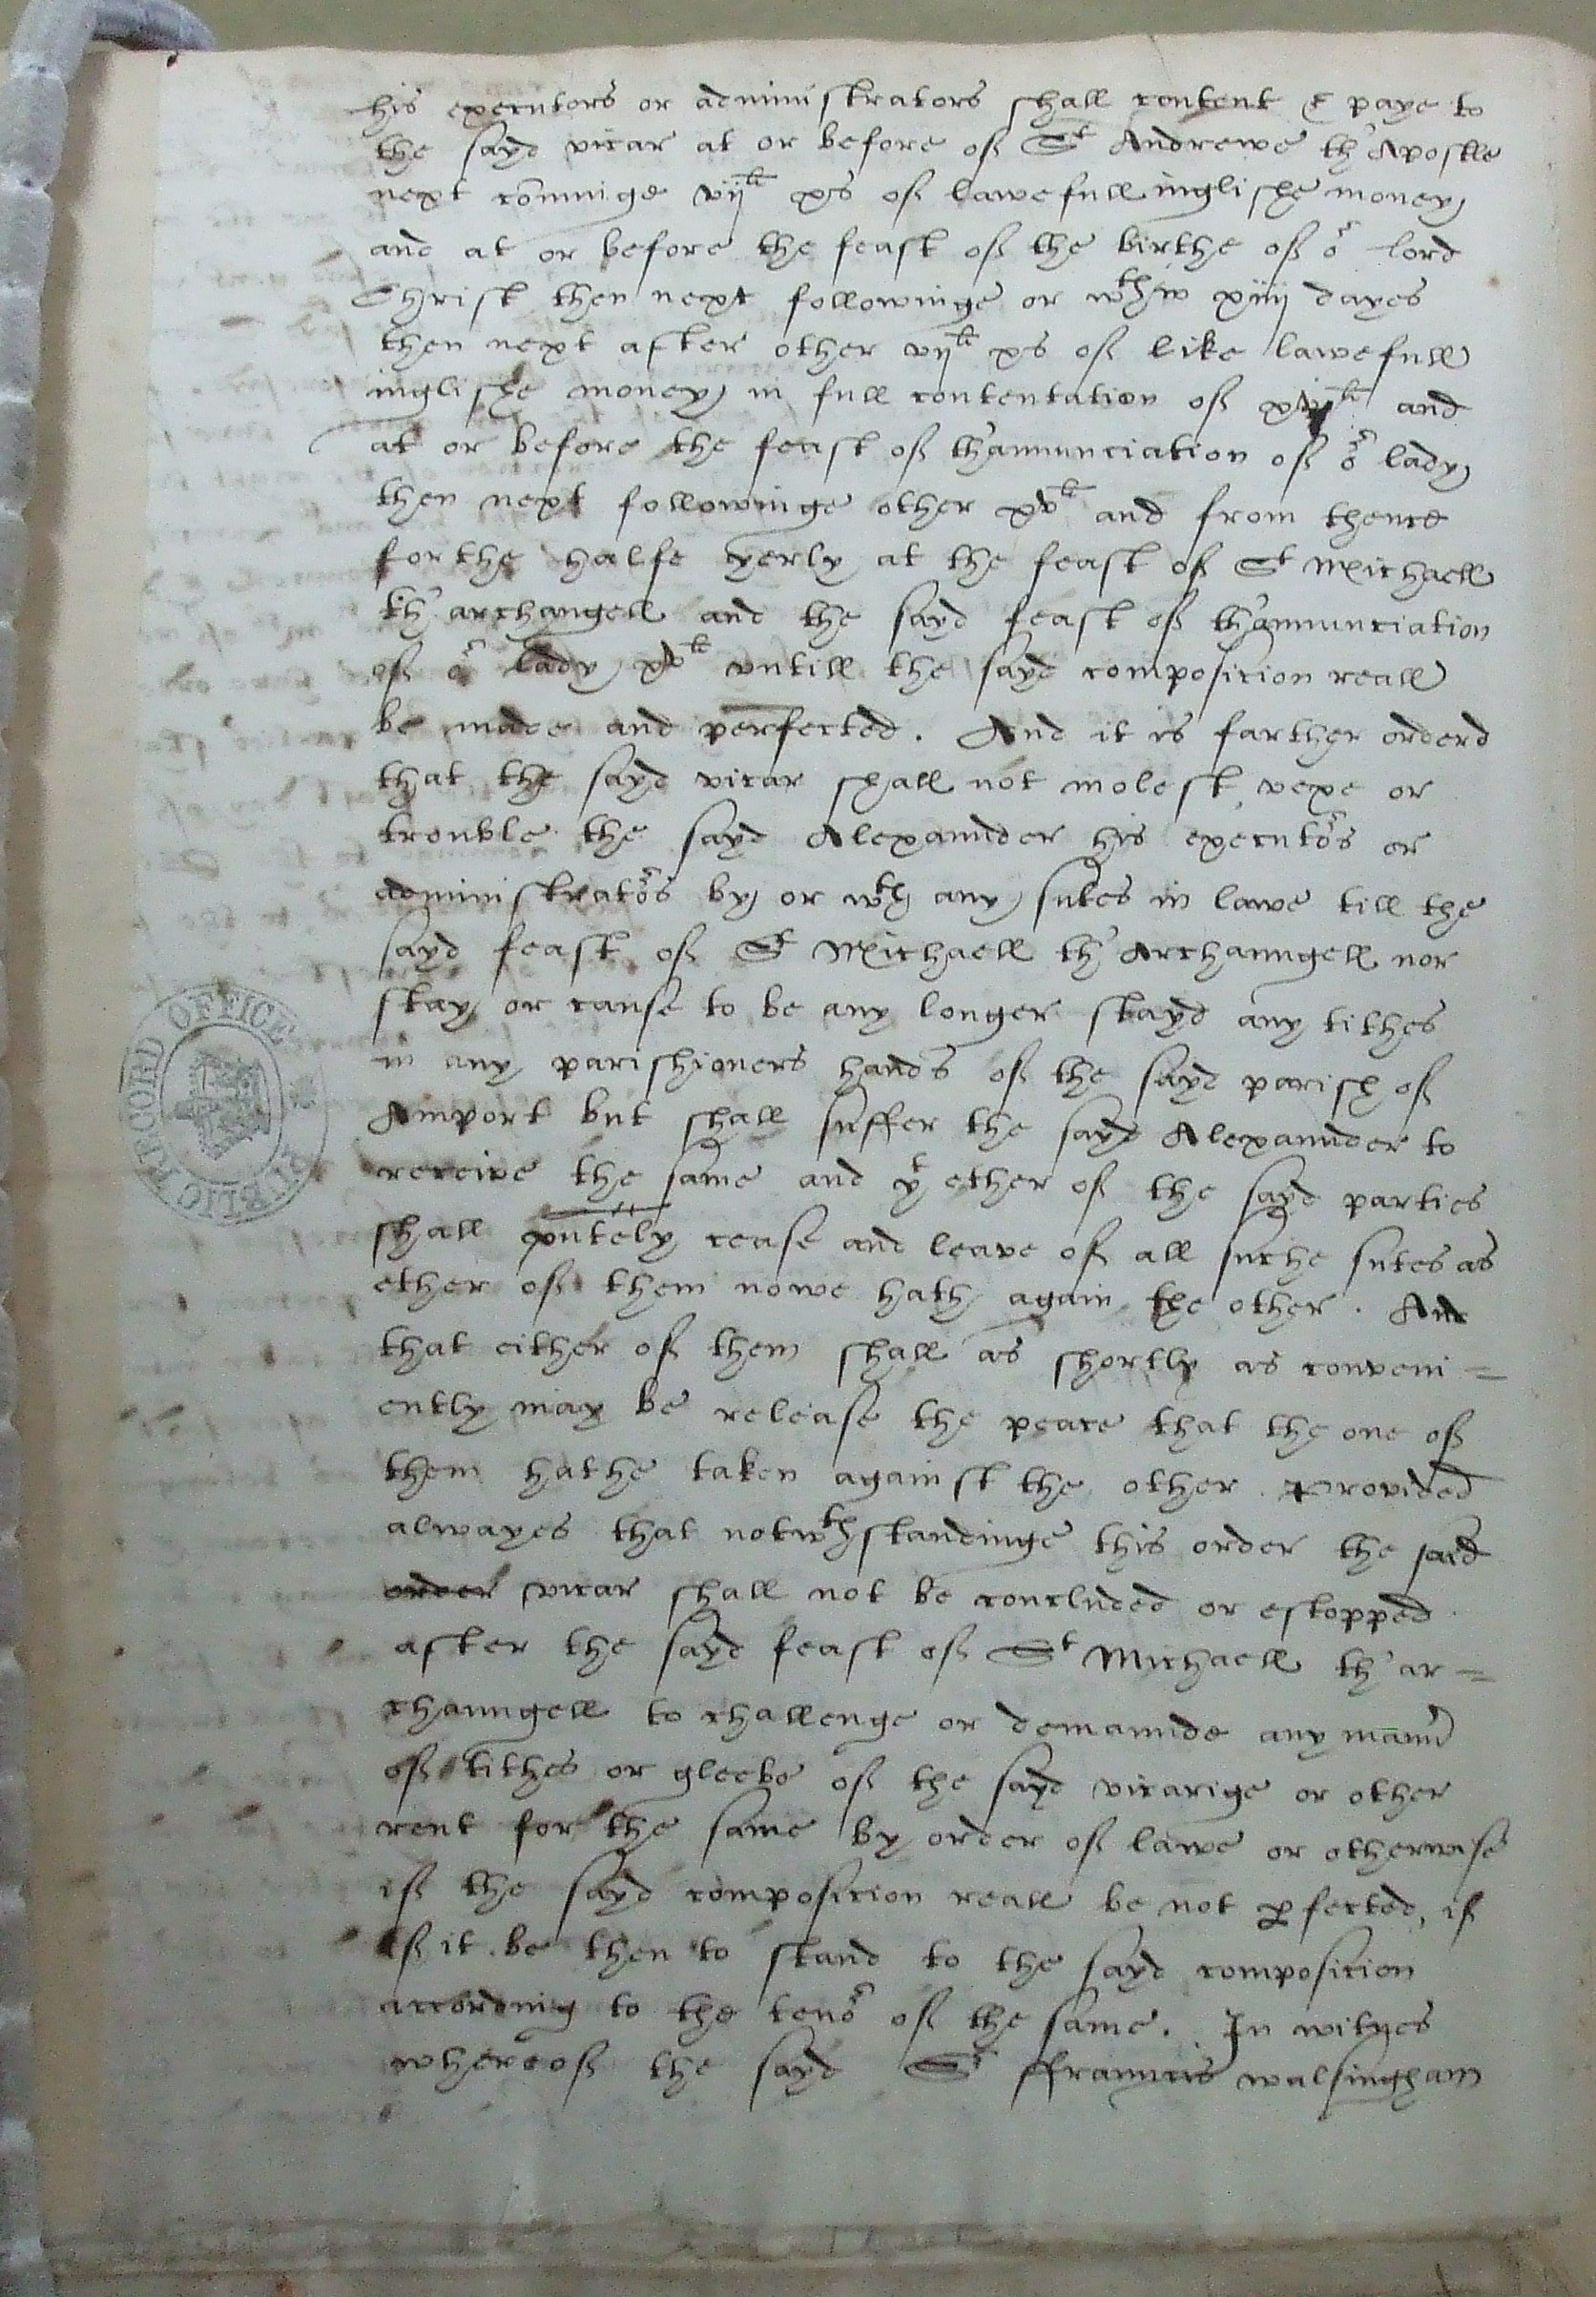 his executors or administrators shall content & paye to
the sayd vicar at or before of St Andrewe th'Apostle
next comminge vijli xs of lawefull inglishe money
and at or before the feast of the birthe of or lord
Christ then next followinge or wthin xiiij dayes
then next after other vijli xs of like lawefull
inglishe money in full contentation of xvli and
at or before the feast of th'annunciation of or lady
then next followinge other xvli and from thence
forthe halfe yerly at the feast of St Michaell
th'archangell and the sayd feast of th'annunciation
of or lady xvli vntill the sayd composicion reall
be made and perfected. And it is farther orderd
that the sayd vicar shall not molest vexe or
trouble the sayd Alexaunder his executors or
administrators by or wth any sutes in lawe till the
sayd feast of St Michaell th'Archaungell nor
stay or cause to be any longer stayd any tithes
in any parishioners hands of the sayd parish of
Amport but shall suffer the sayd Alexaunder to
receive the same and yt ether of the sayd parties
shall pntely cease and leave of all suche sutes as
ether of them nowe hath again the other. And
that either of them shall as shortly as conveni=
ently may be release the peace that the one of
them hathe taken against the other. Provided
alwayes that notwthstandinge this order the said
order vicar shall not be concluded or estopped
after the sayd feast of St Michaell th'ar=
chaungell to challenge or demaunde any mann
of tithes or gleebe of the sayd vicarige or other
rent for the same by order of lawe or otherwise
if the sayd composicion reall be not pfected, if
if it be then to stand to the sayd composicion
according to the tenor of the same. In witnes
whereof the sayd Sr ffrauncis walsingham
PUBLIC RECORD OFFICE